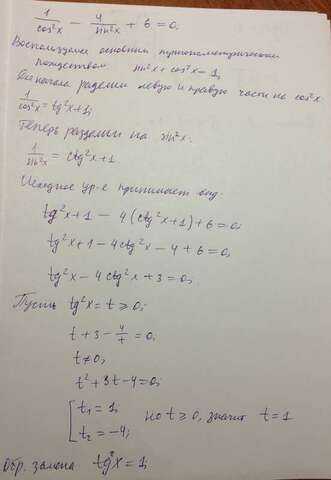 1/cos²x − 4/sin²x + 6 = 0;
Воспользуемся основным тригонометрическим
тождеством: sin²x + cos²x = 1;
Сначала разделим левую и правую части на cos²x:
1/cos²x = tg²x + 1;
Теперь разделим на sin²x:
1/sin²x = ctg²x + 1.
Исходное ур-е принимает вид:
tg²x + 1 − 4(ctg²x + 1) + 6 = 0;
tg²x + 1 − 4ctg²x − 4 + 6 = 0;
tg²x − 4ctg²x + 3 = 0;
Пусть tg²x = t ≥ 0;
t + 3 − 4/t = 0;
t ≠ 0;
t² + 3t − 4 = 0;
[ t₁ = 1;
t₂ = −4; но t ≥ 0, значит t = 1
Обр. замена tg²x = 1;